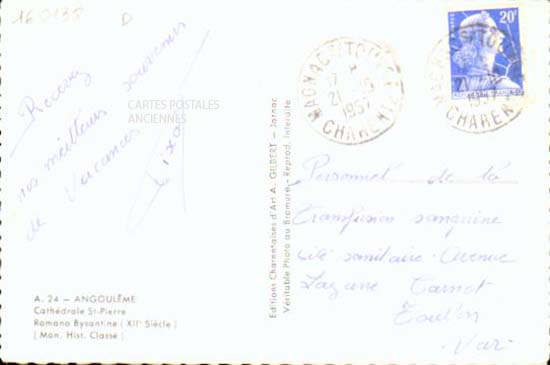 160138 D
Recevez
nos meilleurs souvenirs
de Vacances
CARTES POSTALES
ANCIENNES
A. 24 — ANGOULÊME
Cathédrale St-Pierre
Romano Bysantine ( XIIe Siècle )
( Mon. Hist. Classé )
Editions Charentaises d'Art A. GILBERT - Jarnac
Véritable Photo au Bromure - Reprod. Interdite
17 H
21 -10
1957
CHARENTE
20F
21
1957
CHARENTE
Personnel de la
transfusion sanguine
cité sanitaire - Avenue
Lazare Carnot
Toulon
- Var -